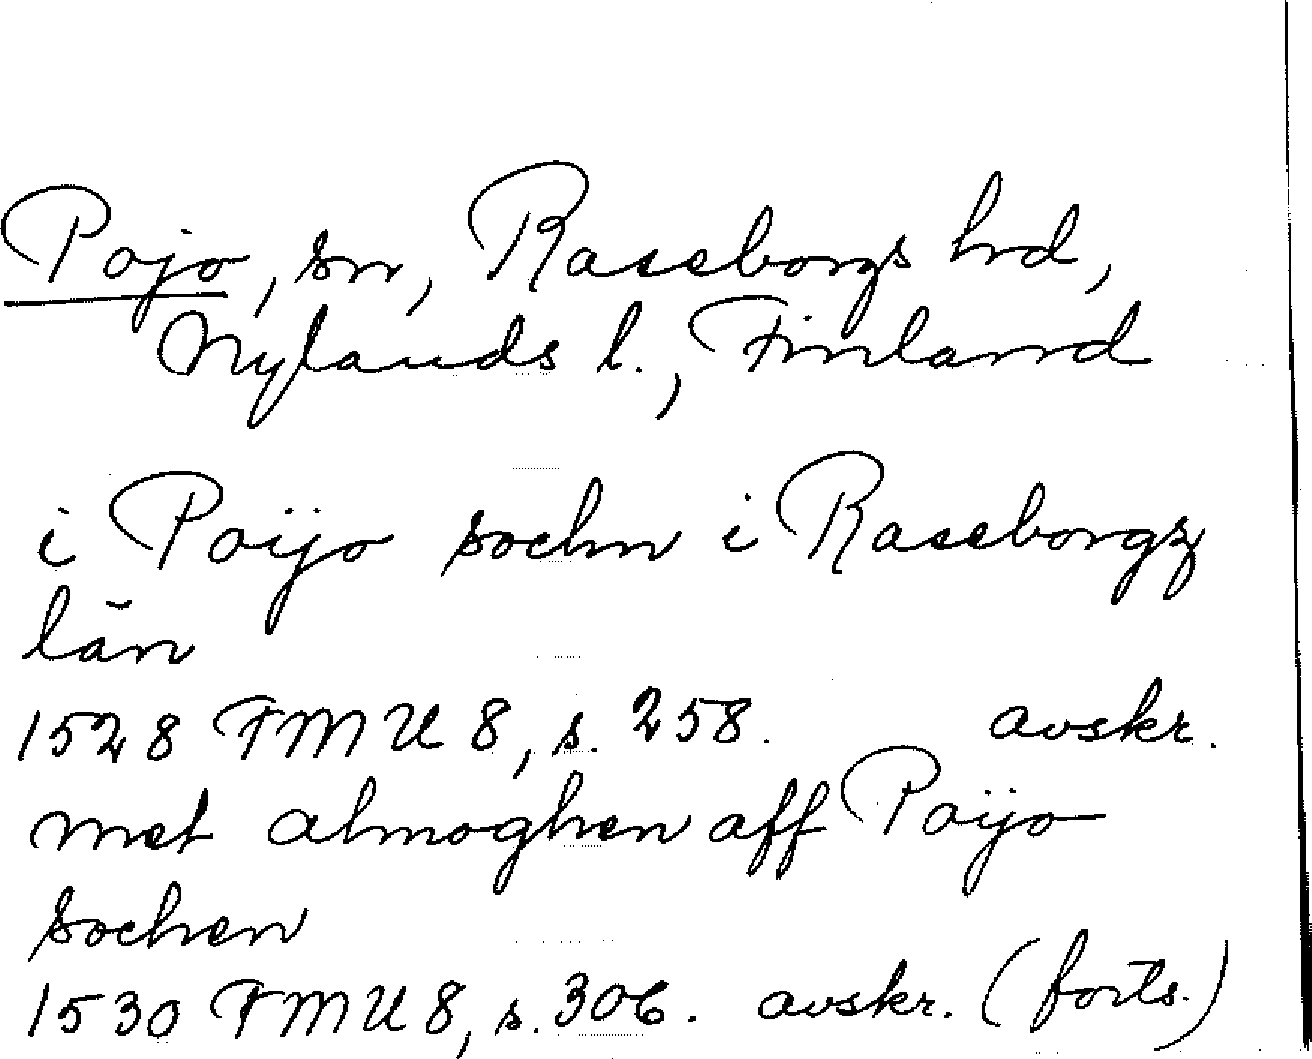 Pojo, sn, Raseborgs hrd,
Nylands l., Finland
i Poijo sochn i Raseborgz
län
1528 FMU 8, s. 258. avskr.
met almoghen aff Poijo
sochen
1530 FMU 8, s. 306. avskr. (forts.)